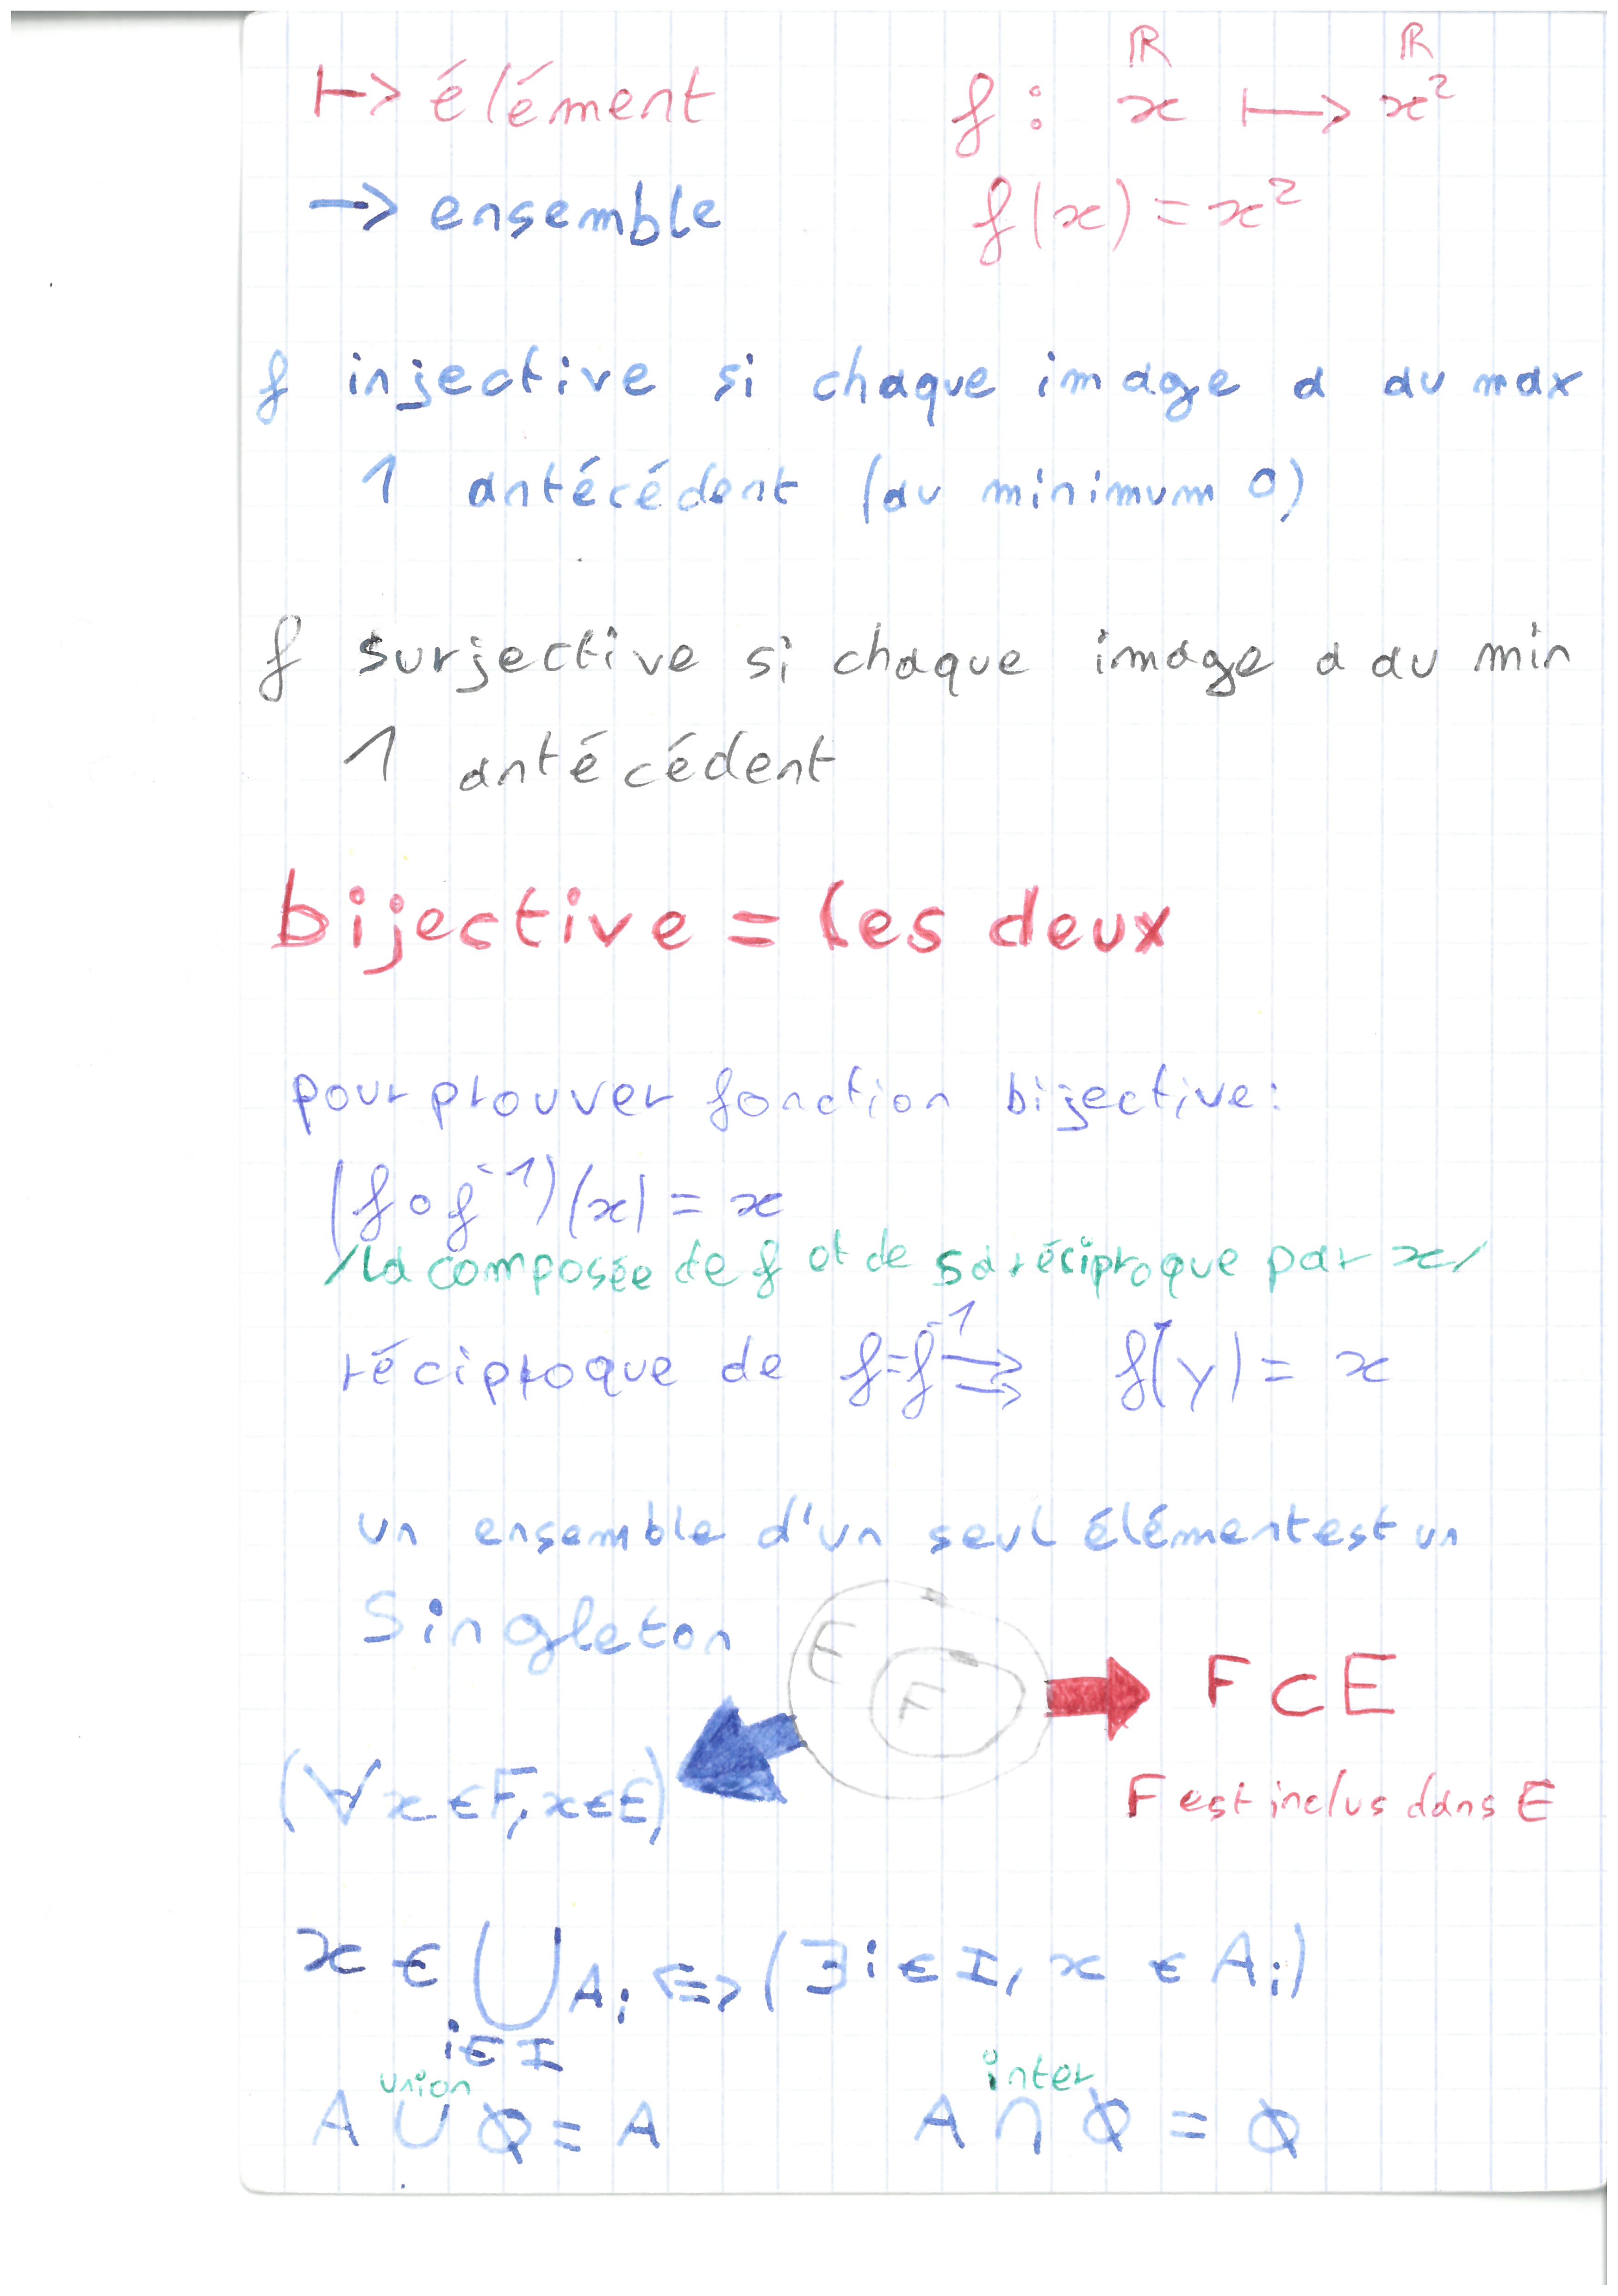 ↦ élément
ℝ ℝ
f : x ⟼ x²
→ ensemble
f(x) = x²
f injective si chaque image a au max
1 antécédent (au minimum 0)
f surjective si chaque image a au min
1 antécédent
bijective = les deux
pour prouver fonction bijective :
(f ∘ f⁻¹)(x) = x
/la composée de f et de sa réciproque par x/
réciproque de f = f⁻¹ ⇒ f⁻(y) = x
un ensemble d'un seul élément est un
Singleton
E
F
F ⊂ E
(∀ x ∈ F, x ∈ E)
F est inclus dans E
x ∈ ⋃ Aᵢ ⟺ (∃ i ∈ I, x ∈ Aᵢ)
i ∈ I
union
inter
A ∪ ∅ = A
A ∩ ∅ = ∅